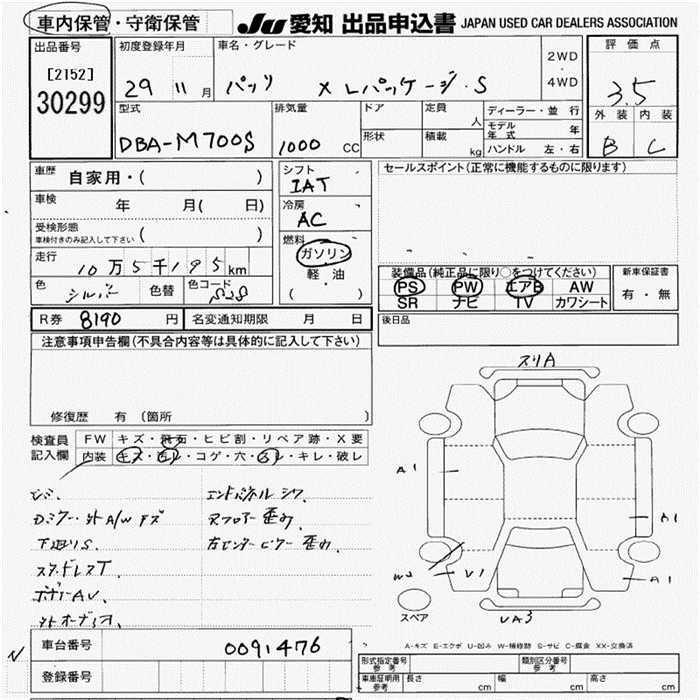 車内保管・守衛保管 JU 愛知 出品申込書 JAPAN USED CAR DEALERS ASSOCIATION
出品番号 初度登録年月 車名・グレード 2WD・4WD 評価点
[2152] 30299 29 11月 パッソ X Lパッケージ・S 3.5
型式 排気量 ドア 定員 人 ディーラー・並行 外装 内装
DBA-M700S 1000 CC 形状 積載 kg モデル年式 年 B C
ハンドル 左・右
車歴 自家用・( ) シフト IAT セールスポイント(正常に機能するものに限ります)
車検 年 月( 日) 冷房 AC
受検形態 車検付きのみ記入して下さい ( ) 燃料 ガソリン
走行 10万5千195km 軽・油 装備品(純正品に限り○をつけてください) 新車保証書
色 シルバー 色替 色コード S28 ( ・ ) PS PW エアB AW 有・無
SR ナビ TV カワシート
R券 8190円 名変通知期限 月 日 後日品
注意事項申告欄(不具合内容等は具体的に記入して下さい)
スリA
修復歴 有(箇所
検査員記入欄 FW キズ・飛石・ヒビ割・リペア跡・X要
内装 キズ・汚レ・コゲ・穴・スレ・キレ・破レ
A1
エンドパネルシワ
ドミラー・外A/Wキズ
Rフロアー歪み、 A1
下廻りS、 右センターピラー歪み、
スタッドレスT、 W2 V1 A1
ボデーAV、
外オーディオ、 スペア UA3
A-キズ E-エクボ U-凹み W-補修跡 S-サビ C-腐食 XX-交換済
車台番号 0091476
登録番号 型式指定番号 参考 類別区分番号 参考
車庫証明用 参考 長さ cm 幅 cm 高さ cm